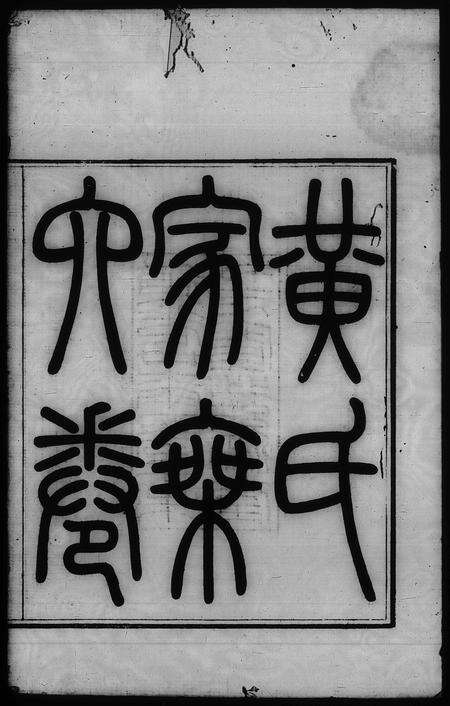 黃氏
家乘
六卷